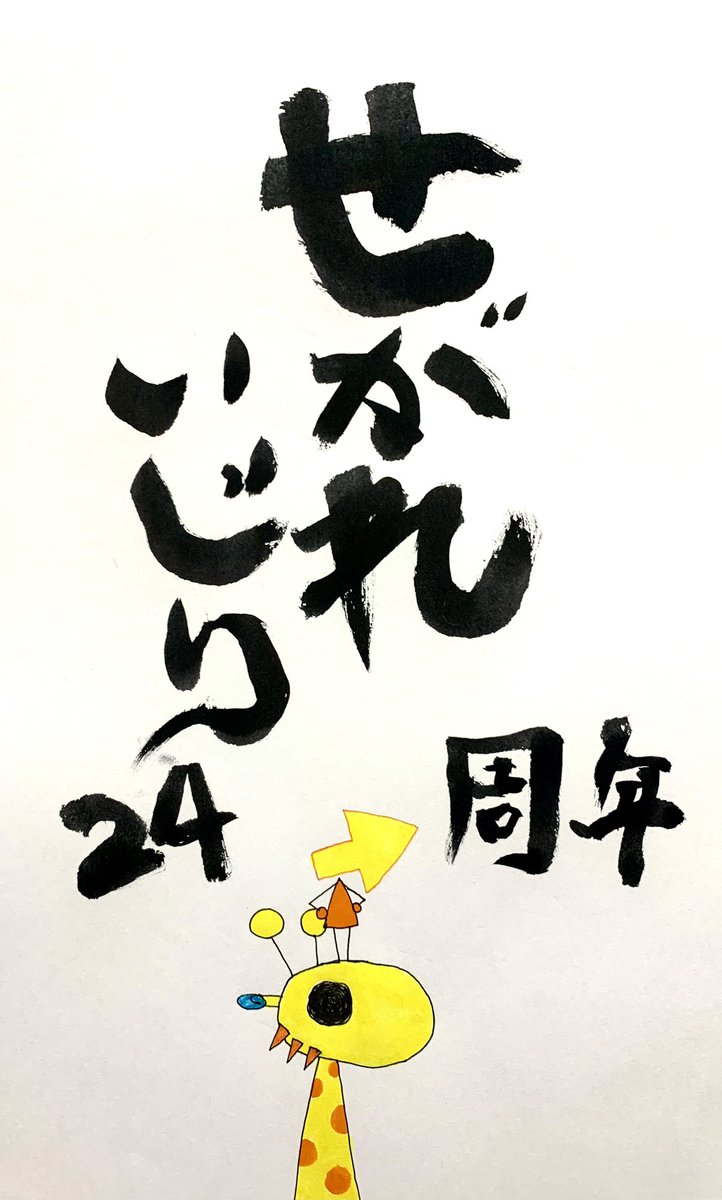 せがれ
いじり
24周年